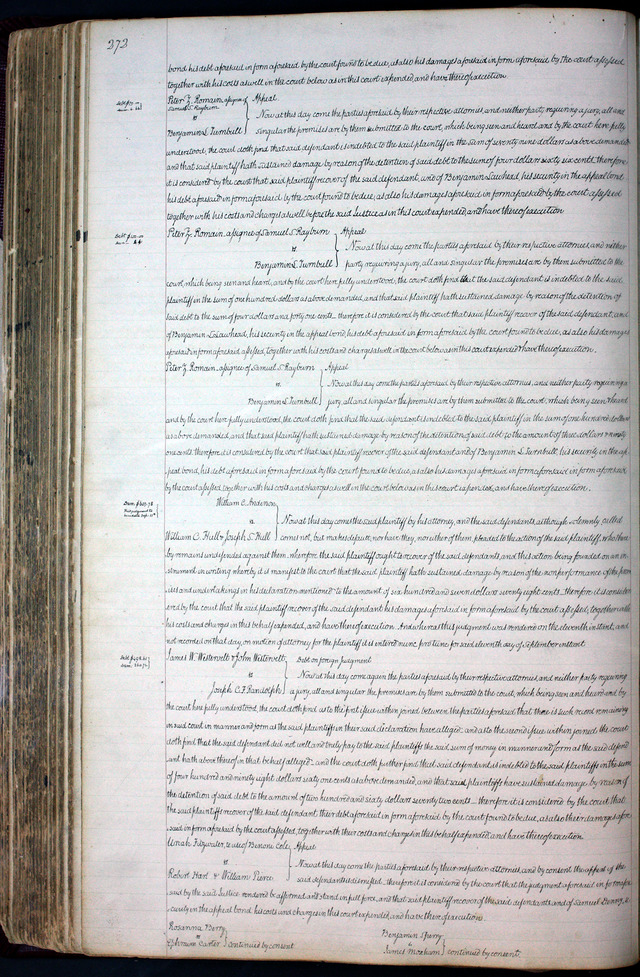 272
bond, his debt aforesaid in form aforesaid by the court found to be due, as also his damages aforesaid in form aforesaid by the court assessed
together with his costs as well in the court below as in this court expended, and have thereof execution.
Peter Z. Romain, assignee of Samuel S. Rayburn } Appeal
vs
Benjamin L. Turnbull
Now at this day come the parties aforesaid by their respective attornies, and neither party requiring a jury, all and
singular the premises are by them submitted to the court, which being seen and heard, and by the court here fully
understood, the court doth find that said defendant is indebted to the said plaintiff in the sum of seventy nine dollars as above demanded
and that said plaintiff hath sustained damage by reason of the detention of said debt to the sum of four dollars sixty six cents, therefore
it is considered by the court that said plaintiff recover of the said defendant, and of Benjamin his security in the appeal bond
his debt aforesaid in form aforesaid by the court found to be due, as also his damages aforesaid in form aforesaid by the court assessed
together with his costs and charges as well before the said Justice as in this court expended, and have thereof execution
Peter Z. Romain, assignee of Samuel S. Rayburn } Appeal
vs
Benjamin L. Turnbull
Now at this day come the parties aforesaid by their respective attornies, and neither
party requiring a jury, all and singular the premises are by them submitted to the
court, which being seen and heard, and by the court here fully understood, the court doth find that the said defendant is indebted to the said
plaintiff in the sum of one hundred dollars as above demanded, and that said plaintiff hath sustained damage by reason of the detention of
said debt to the sum of four dollars and forty one cents, therefore it is considered by the court that said plaintiff recover of the said defendant, and
of Benjamin his security in the appeal bond, his debt aforesaid in form aforesaid by the court found to be due, as also his damages
aforesaid in form aforesaid assessed, together with his costs and charges as well in the court below as in this court expended & have thereof execution.
Peter Z Romain, assignee of Samuel S Rayburn } Appeal
vs
Benjamin L. Turnbull
Now at this day come the parties aforesaid by their respective attornies, and neither party requiring a
jury, all and singular the premises are by them submitted to the court, which being seen & heard
and by the court here fully understood, the court doth find that the said defendant is indebted to the said plaintiff in the sum of one hundred dollars
as above demanded, and that said plaintiff hath sustained damage by reason of the detention of said debt to the amount of three dollars & ninety
one cents, therefore it is considered by the court that said plaintiff recover of the said defendant and of Benjamin L. Turnbull, his security in the ap
peal bond, his debt aforesaid in form aforesaid by the court found to be due, as also his damages aforesaid in form aforesaid
by the court assessed together with his costs and charges as well in the court below as in this court expended, and have thereof execution.
William C. Anderson
vs
William C. Hull & Joseph S. Hull
Now at this day come the said plaintiff by his attorney, and the said defendants although solemnly called
comes not, but makes default, nor have they, nor either of them, pleaded to the action of the said plaintiff, who there
by remains undefended against them, wherefore the said plaintiff ought to recover of the said defendants, and this action being founded on an in
strument in writing whereby it is manifest to the court that the said plaintiff hath sustained damage by reason of the nonperformance of the prom
ises and undertakings in his declaration mentioned to the amount of six hundred and seven dollars seventy eight cents, therefore it is consider
ed by the court that the said plaintiff recover of the said defendant his damages aforesaid in form aforesaid by the court assessed, together with
his costs and charges in this behalf expended, and have thereof execution. And whereas this judgment was rendered on the eleventh instant, and
not recorded on that day, on motion of attorney for the plaintiff it is entered nunc pro tunc for said eleventh day of September instant.
James W. Westervelt & John Westervelt } Debt on foreign judgment
vs
Joseph C. F. Randolph
Now at this day come again the parties aforesaid by their respective attornies, and neither party requiring
a jury, all and singular the premises are by them submitted to the court, which being seen and heard and by
the court here fully understood, the court doth find as to the first issue within joined between the parties aforesaid that there is such record remaining
in said court in manner and form as the said plaintiffs in their said declaration have alleged, and as to the second issue within joined the court
doth find that the said defendant did not well and truly pay to the said plaintiffs the said sum of money in manner and form as the said defend
ant hath above thereof in that behalf alleged, and the court doth further find that said defendant is indebted to the said plaintiffs in the sum
of four hundred and ninety eight dollars sixty one cents as above demanded, and that said plaintiffs have sustained damage by reason of
the detention of said debt to the amount of two hundred and sixty dollars seventy two cents, therefore it is considered by the court that
the said plaintiffs recover of the said defendant their debt aforesaid in form aforesaid by the court found to be due, as also their damages afore
said in form aforesaid by the court assessed, together with their costs and charges in this behalf expended, and have thereof execution.
Uriah Fitzwater, to use of Benoni Cole } Appeal
vs
Robert Hart & William Pierce
Now at this day come the parties aforesaid by their respective attornies, and by consent the appeal of the
said defendants is dismissed, therefore it is considered by the court that the judgment aforesaid in form afore
said by the said Justice rendered be affirmed and stand in full force, and that said plaintiff recover of the said defendants and of Samuel se
curity in the appeal bond his costs and charges in this court expended, and have thereof execution.
Rosanna Berry
vs
Ephraim Carter } continued by consent
Benjamin Sherry
vs
James Moxham } continued by consent.